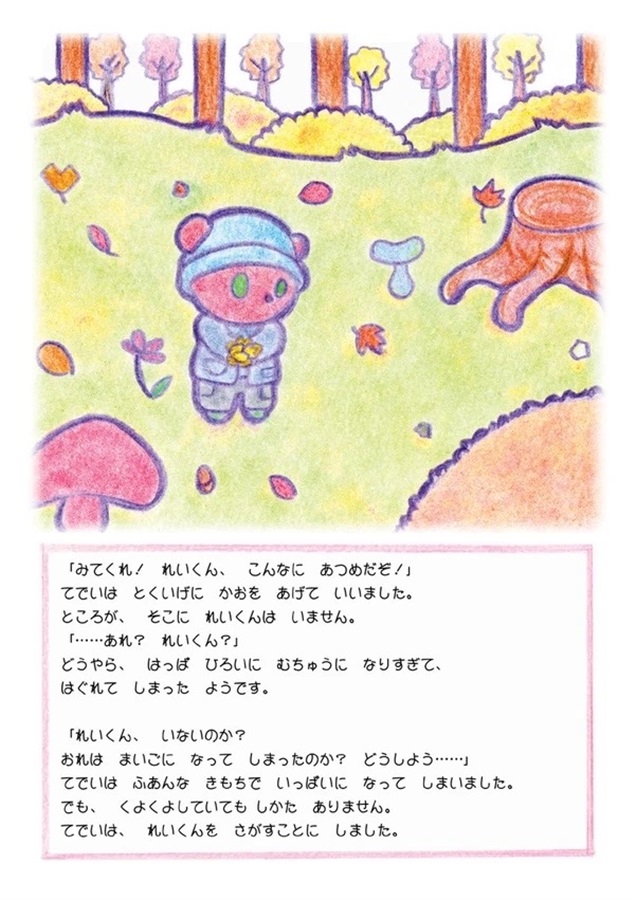 「みてくれ！　れいくん、　こんなに　あつめだぞ！」
てでいは　とくいげに　かおを　あげて　いいました。
ところが、　そこに　れいくんは　いません。
「……あれ？　れいくん？」
どうやら、　はっぱ　ひろいに　むちゅうに　なりすぎて、
はぐれて　しまった　ようです。
「れいくん、　いないのか？
おれは　まいごに　なって　しまったのか？　どうしよう……」
てでいは　ふあんな　きもちで　いっぱいに　なって　しまいました。
でも、　くよくよしていても しかた　ありません。
てでいは、　れいくんを　さがすことに　しました。